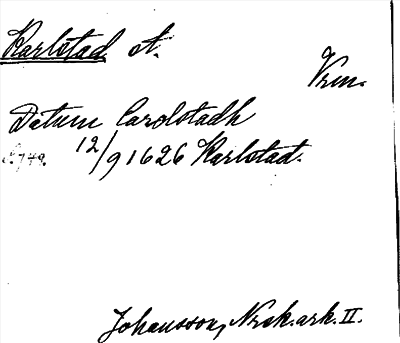 Karlstad st.
Vrm.
Datum Carolstadh
12/9 1626 Karlstad.
Johansson, Nrsk. ark. II.